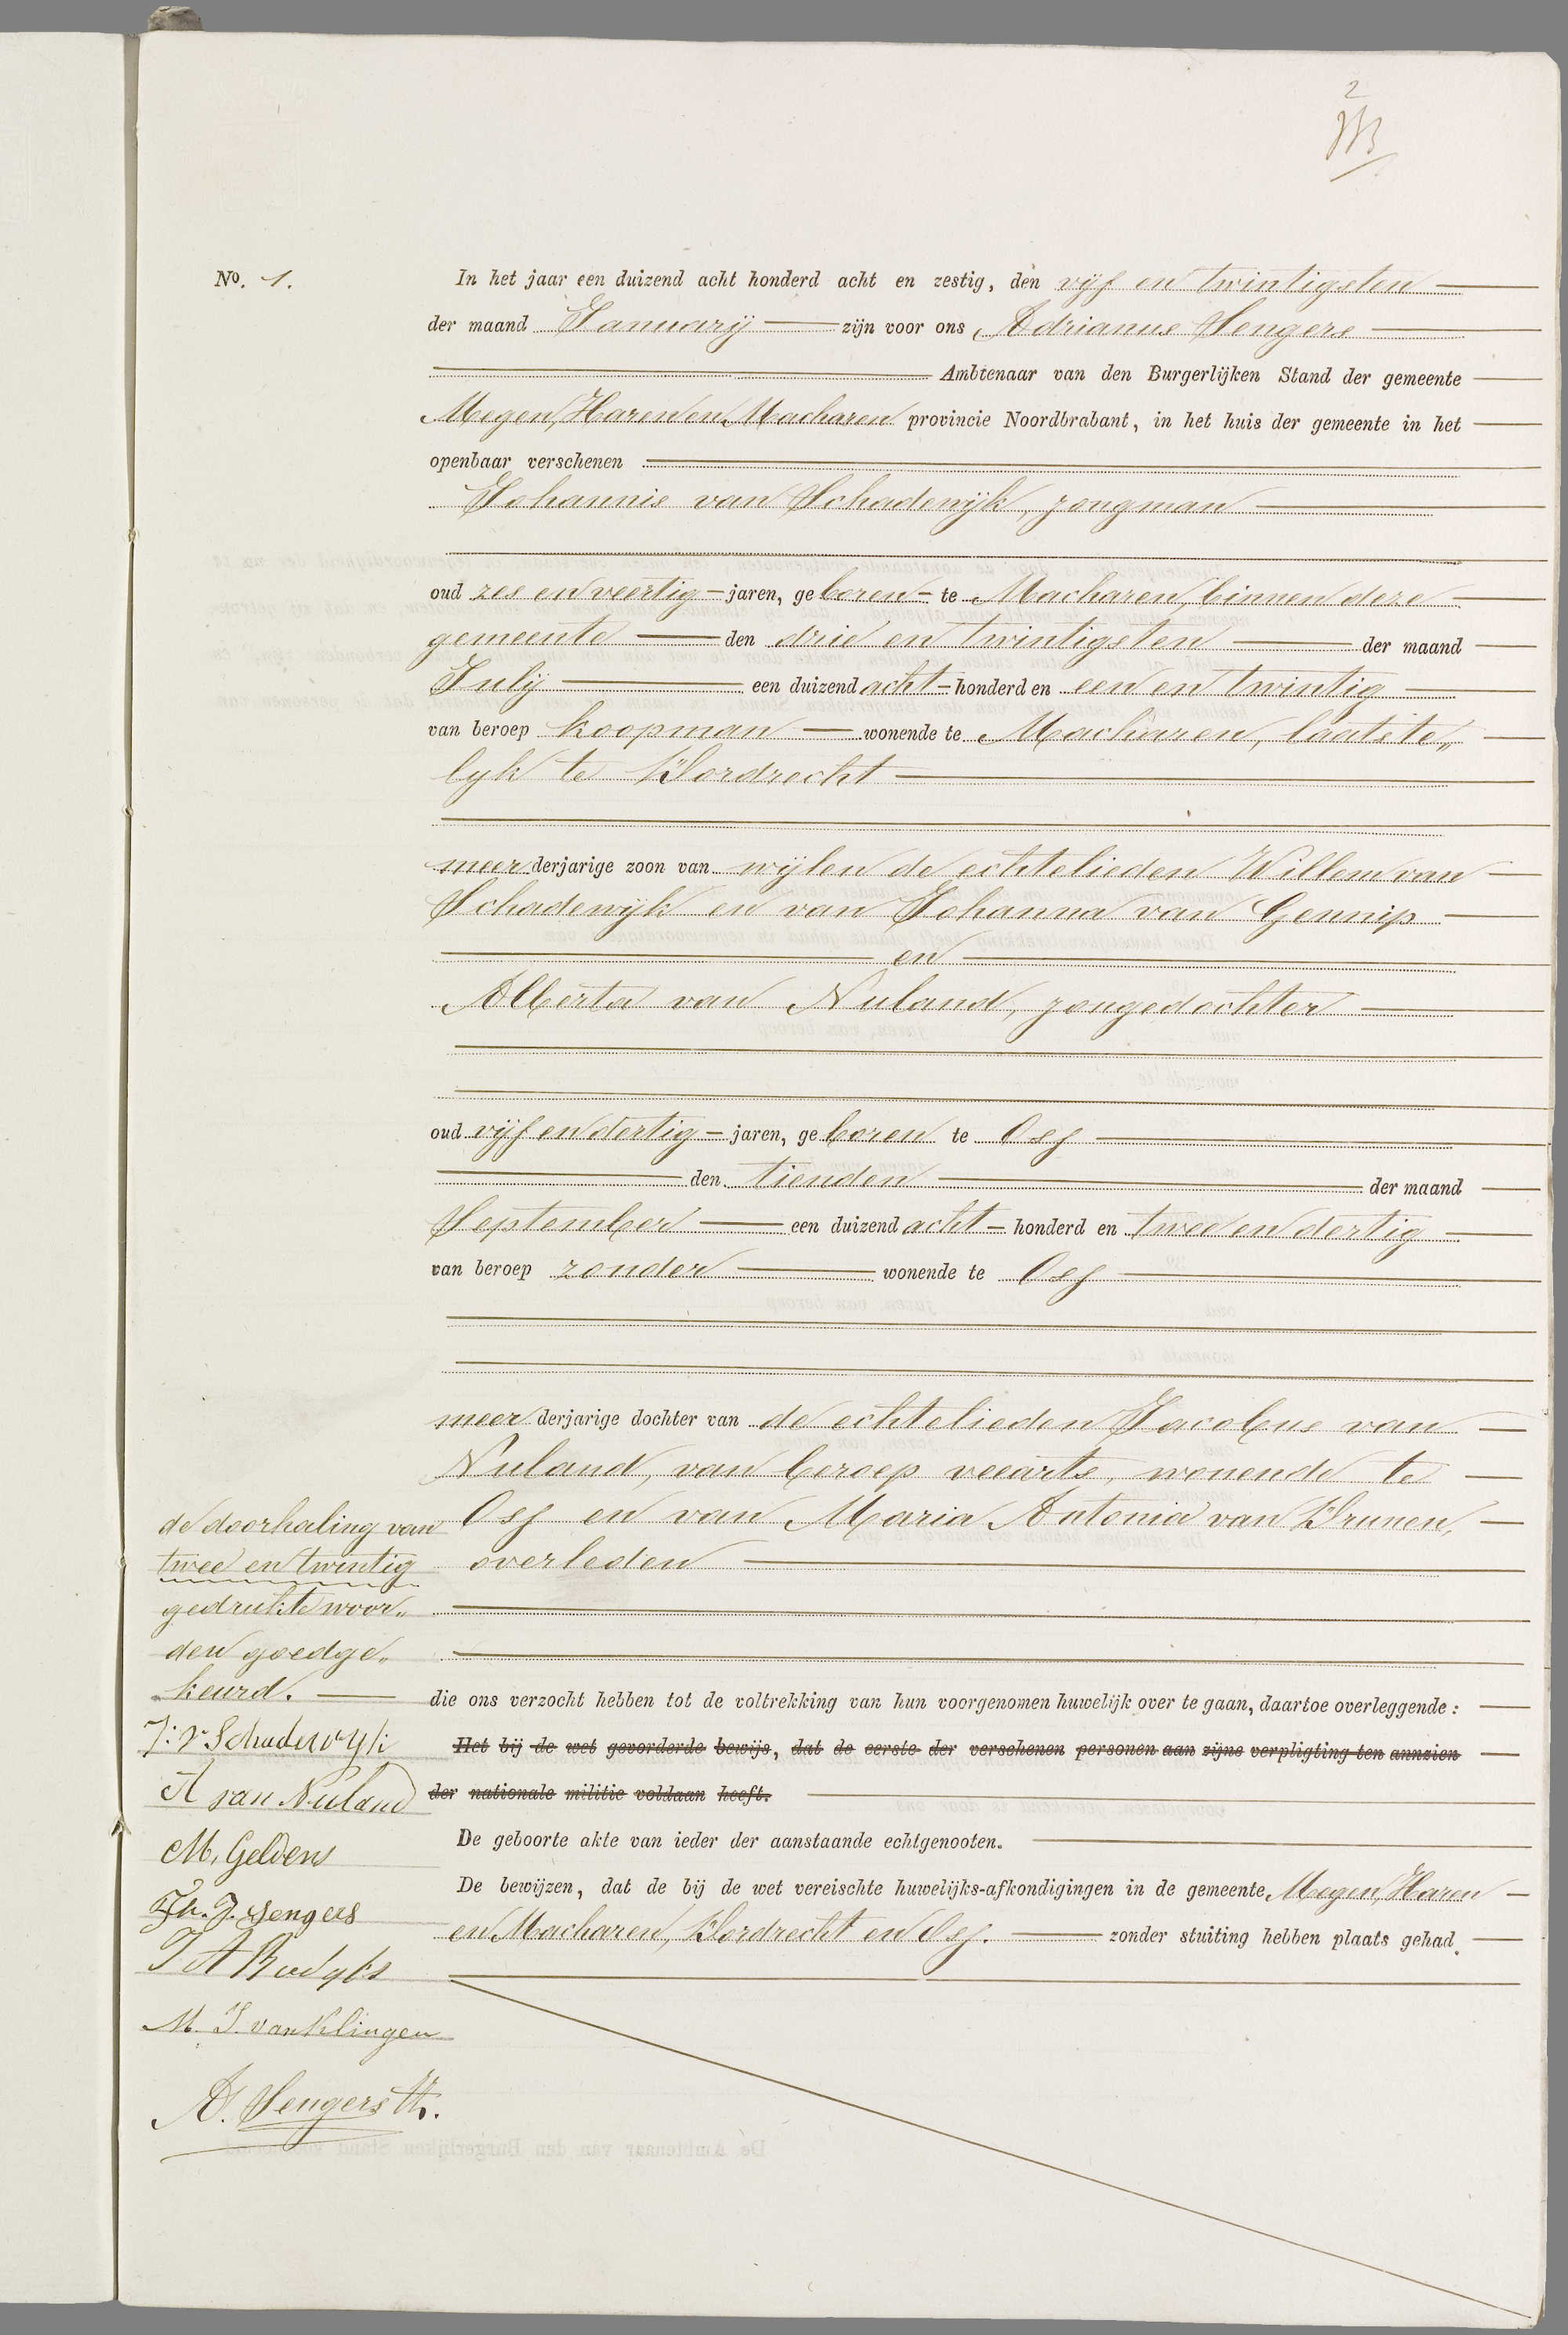 2
No. 1.
In het jaar een duizend acht honderd acht en zestig, den vijf en twintigsten
der maand January zijn voor ons Adrianus Sengers
Ambtenaar van den Burgerlijken Stand der gemeente
Megen, Haren en Macharen provincie Noordbrabant, in het huis der gemeente in het
openbaar verschenen
Johannis van Schadewijk, jongman
oud zes en veertig jaren, geboren te Macharen, binnen deze
gemeente den drie en twintigsten der maand
July een duizend acht honderd en een en twintig
van beroep koopman wonende te Macharen, laatste„
lyk te Dordrecht
meerderjarige zoon van wijlen de echtelieden Willem van
Schadewijk en van Johanna van Gennip
en
Alberta van Nuland, jongedochter
oud vijf en dertig jaren, geboren te Oss
den tienden der maand
September een duizend acht honderd en twee en dertig
van beroep zonder wonende te Oss
meerderjarige dochter van de echtelieden Jacobus van
Nuland, van beroep veearts, wonende te
Oss en van Maria Antonia van Drunen,
overleden
die ons verzocht hebben tot de voltrekking van hun voorgenomen huwelijk over te gaan, daartoe overleggende:
Het bij de wet gevorderde bewijs, dat de eerste der verschenen personen aan zijne verpligting ten aanzien
der nationale militie voldaan heeft.
De geboorte akte van ieder der aanstaande echtgenooten.
De bewijzen, dat de bij de wet vereischte huwelijks-afkondigingen in de gemeente Megen, Haren
en Macharen, Dordrecht en Oss. zonder stuiting hebben plaats gehad.
de doorhaling van
twee en twintig
gedrukte woor„
den goedge„
keurd.
J: v Schadewyk
A van Nuland
M. Geldens
Th. J. Sengers
M. J. van Klingen
A. Sengers